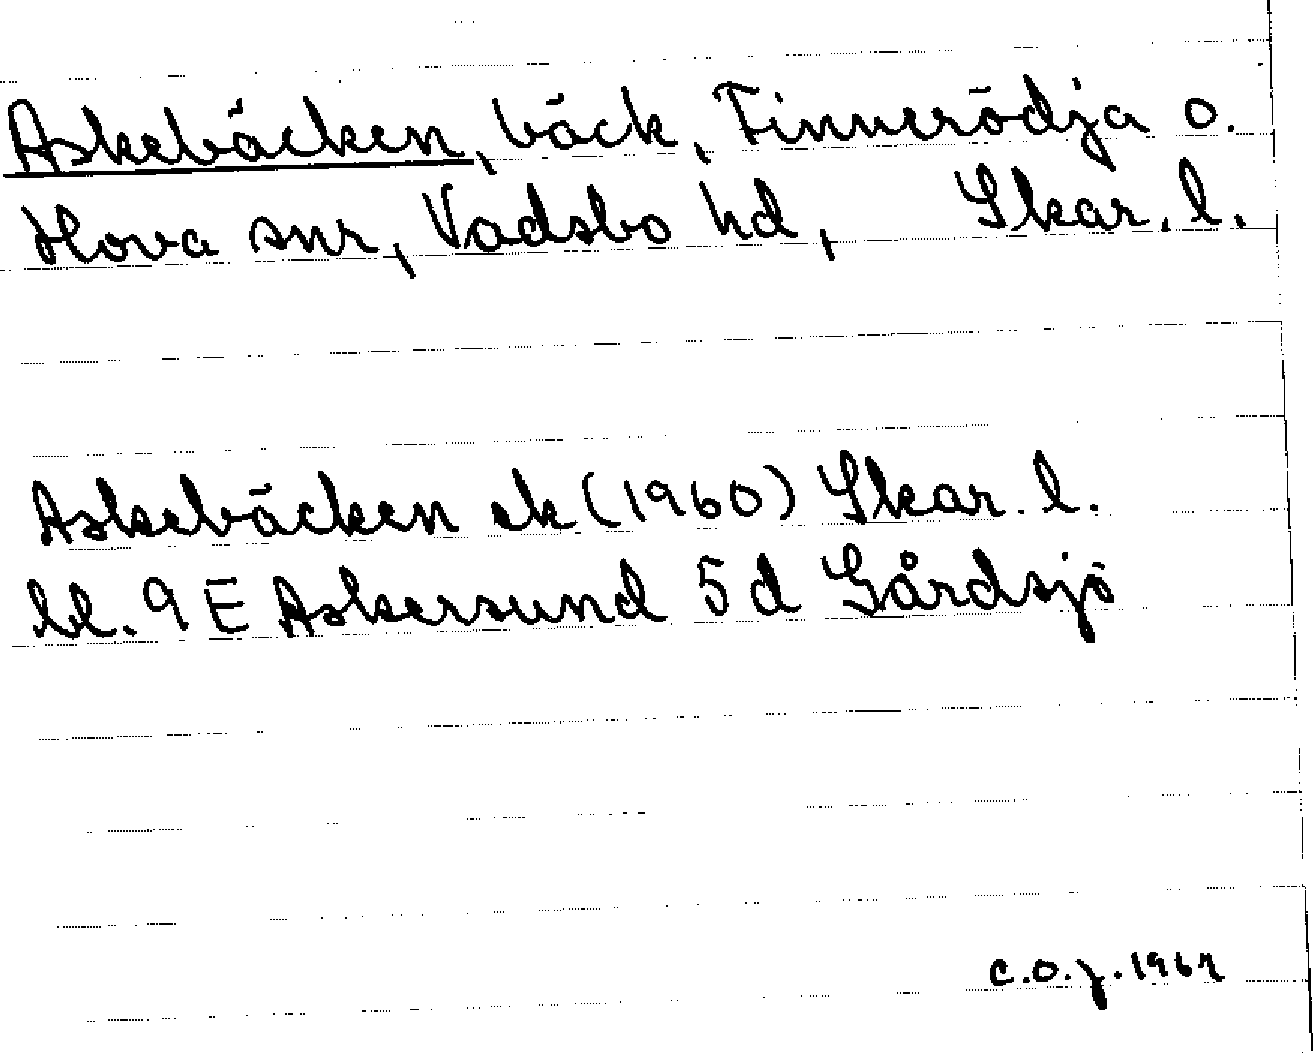 Askebäcken, bäck, Finnerödja o.
Hova snr, Vadsbo hd, Skar. l.
Askebäcken ek (1960) Skar. l.
bl. 9 E Askersund 5 d Gårdsjö
c.o.j. 1967